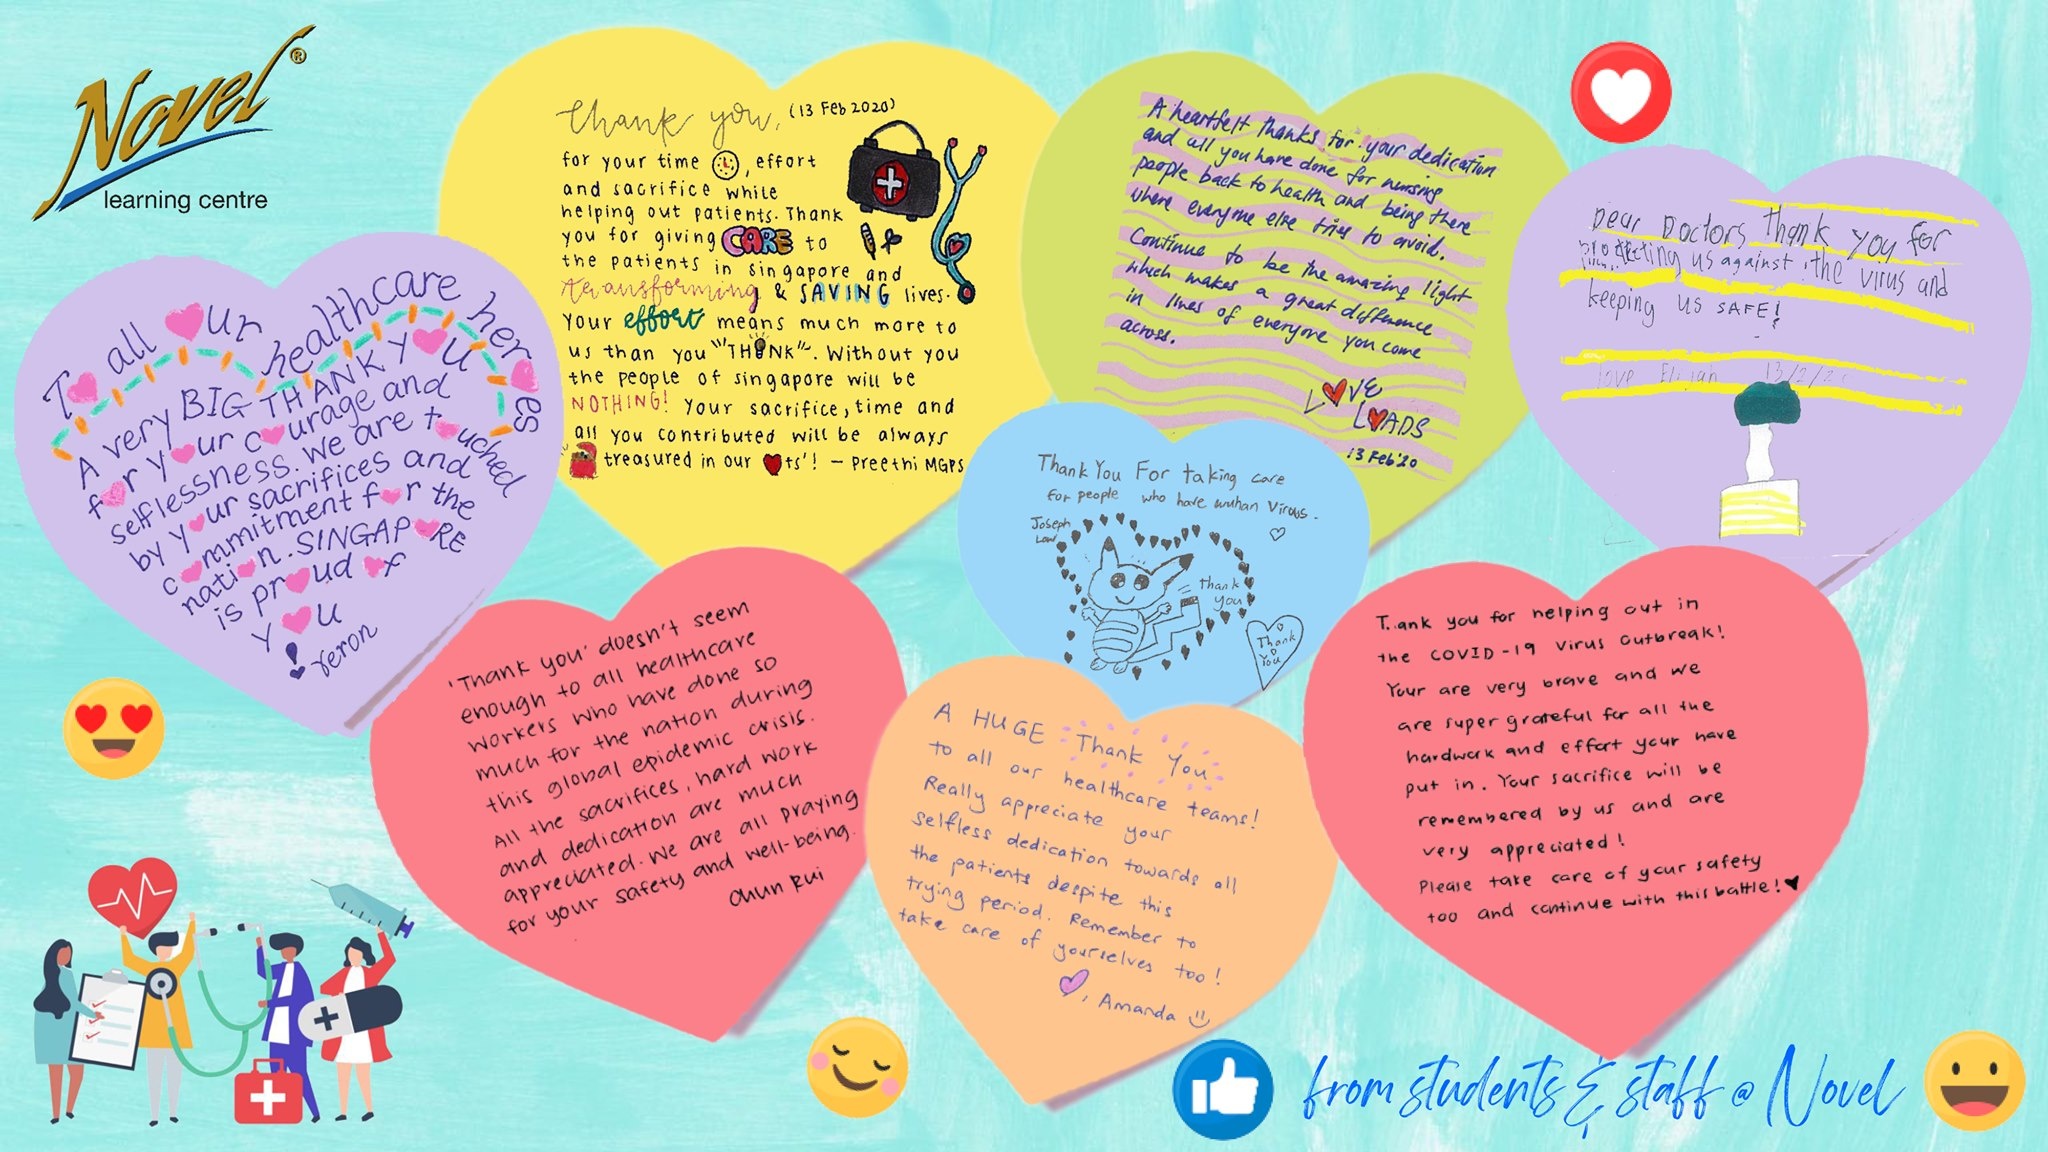 Novel®
learning centre
thank you, (13 Feb 2020)
for your time, effort
and sacrifice while
helping out patients. Thank
you for giving CARE to
the patients in singapore and
transforming & SAVING lives.
Your effort means much more to
us than you "THINK". Without you
the people of singapore will be
NOTHING! Your sacrifice, time and
all you contributed will be always
treasured in our ♥ts'! – Preethi MGPS
A heartfelt thanks for your dedication
and all you have done for nursing
people back to health and being there
where everyone else tries to avoid.
Continue to be the amazing light
which makes a great difference
in lives of everyone you come
across.
LOVE
LOADS
13 Feb'20
Dear Doctors Thank you for
protecting us against the virus and
keeping us SAFE!
love Elijah 13/2/2
To all our healthcare heroes
A very BIG THANK YOU
for your courage and
selflessness. We are touched
by your sacrifices and
commitment for the
nation. SINGAPORE
is proud of
you
!
Veron
Thank You For taking care
for people who have wuhan Virous.
Joseph
Law
Thank
you
Thank
You
'Thank you' doesn't seem
enough to all healthcare
workers who have done so
much for the nation during
this global epidemic crisis.
All the sacrifices, hard work
and dedication are much
appreciated. We are all praying
for your safety and well-being.
Chun Rui
A HUGE Thank You
to all our healthcare teams!
Really appreciate your
selfless dedication towards all
the patients despite this
trying period. Remember to
take care of yourselves too!
♥, Amanda
T..ank you for helping out in
the COVID-19 virus outbreak!
Your are very brave and we
are super grateful for all the
hardwork and effort your have
put in. Your sacrifice will be
remembered by us and are
very appreciated!
Please take care of your safety
too and continue with this battle! ♥
from students & staff @ Novel